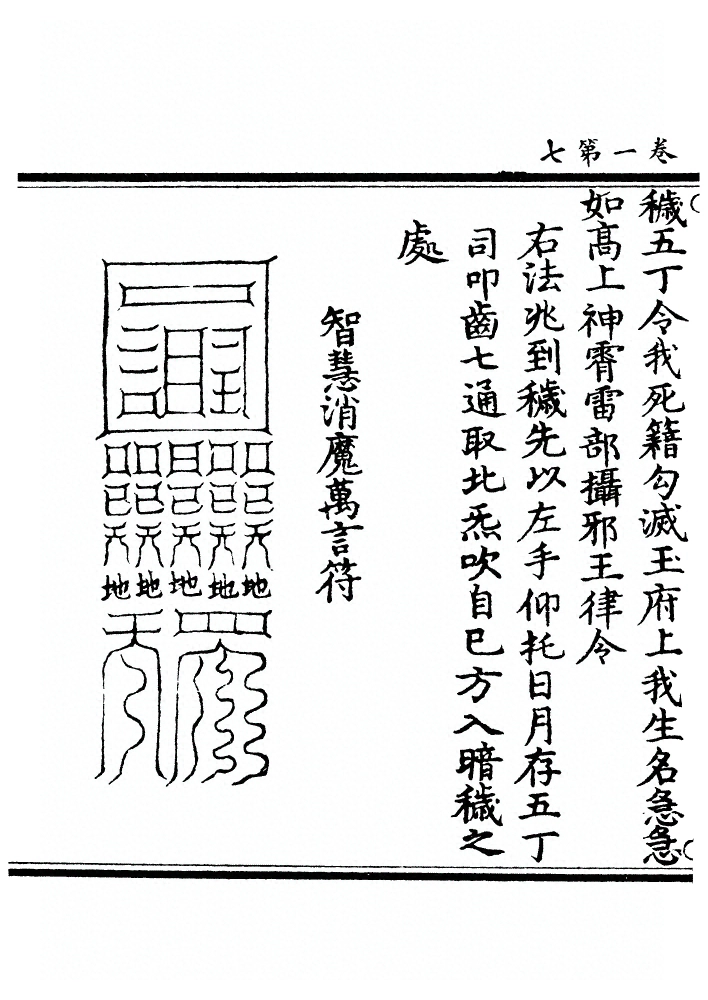 卷一第七
穢五丁令我死籍勾滅玉府上我生名急急
如高上神霄雷部攝邪王律令
右法兆到穢先以左手仰托日月存五丁
司叩齒七通取北炁吹自巳方入暗穢之
處
智慧消魔萬言符
地地地地地